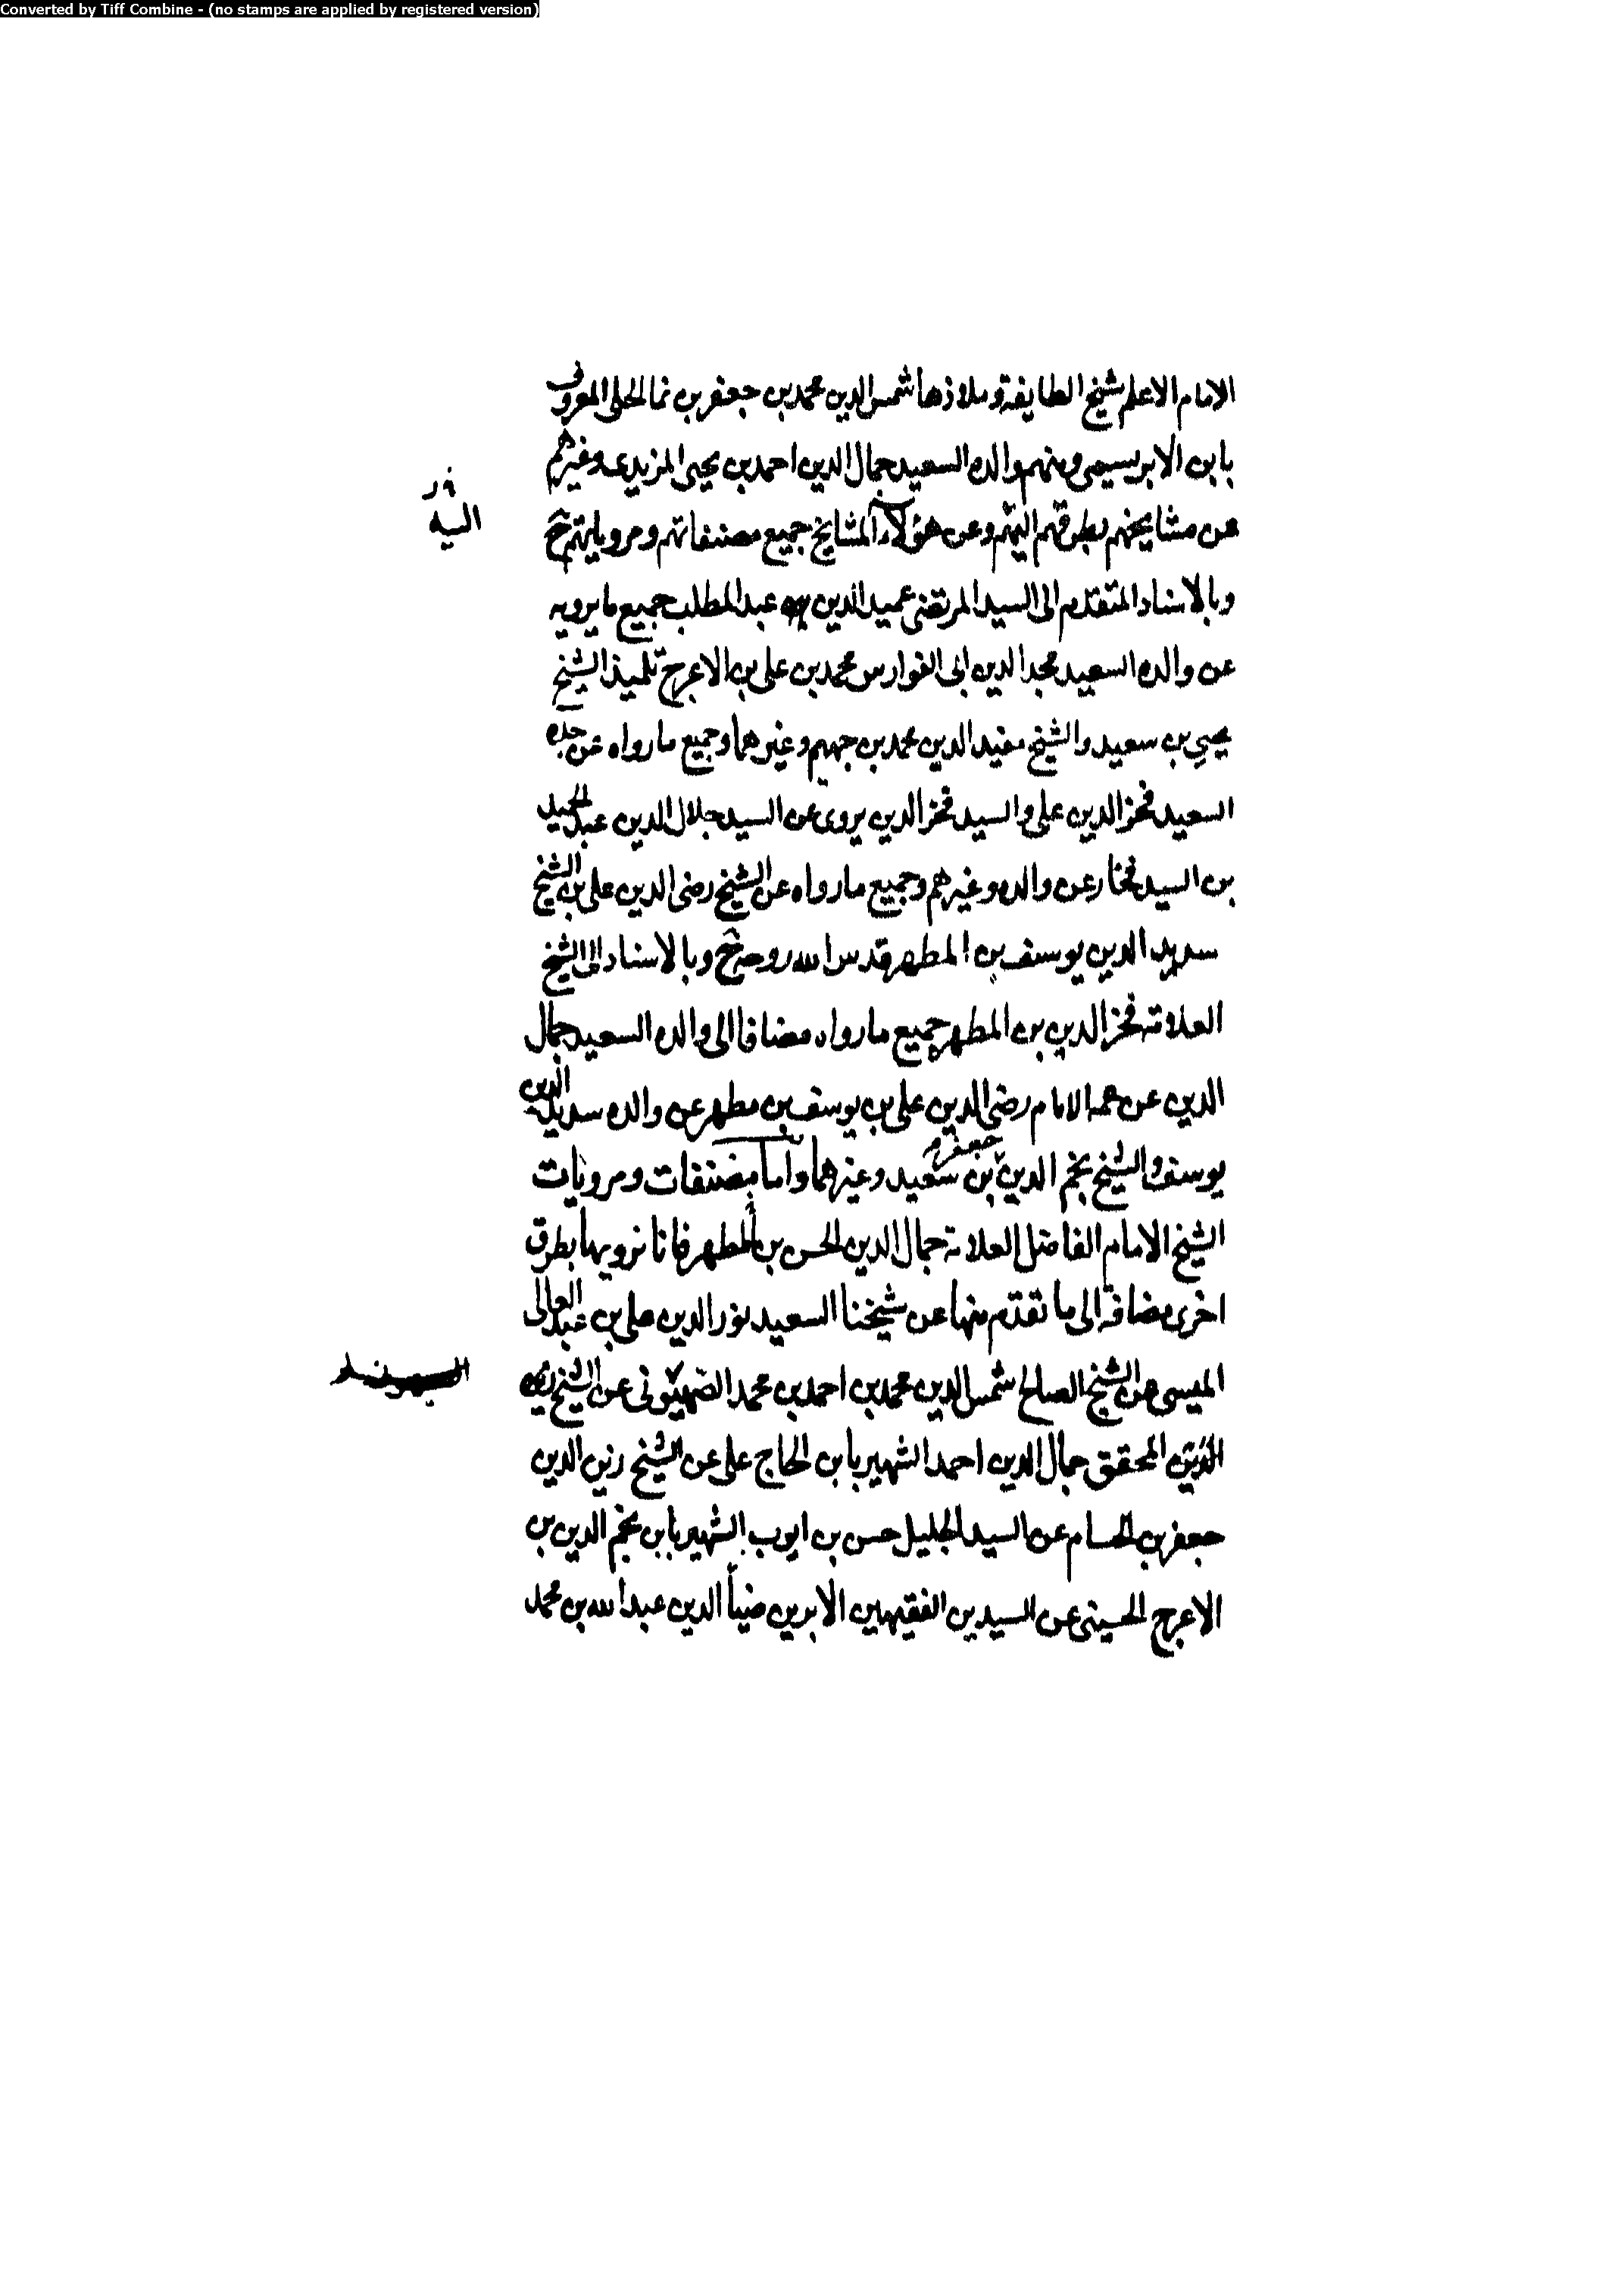 Converted by Tiff Combine - (no stamps are applied by registered version)
الامام الاعلم شيخ الطايفة وملاذها شمس الدين محمد بن جعفر بن نما الحلى المعروف
بابن الابريسمى ومنهم والده السعيد جمال الدين احمد بن يحيى المزيدى وغيرهم
عن مشايخهم بطرقهم اليهم وعن هؤلاء المشايخ جميع مصنفاتهم ومروياتهم ح
اليه
وبالاسناد المتقدم الى السيد المرتضى عميد الدين عبد المطلب جميع ما يرويه
عن والده السعيد مجد الدين ابى الفوارس محمد بن على بن الاعرج تلميذ الشيخ
يحيى بن سعيد والشيخ مفيد الدين محمد بن جهيم وغيرهما وجميع ما رواه عن جده
السعيد فخر الدين على والسيد فخر الدين يروى عن السيد جلال الدين عبد الحميد
بن السيد فخار عن والده وغيرهم وجميع ما رواه عن الشيخ رضى الدين على بن الشيخ
سديد الدين يوسف بن المطهر قدس الله روحه ح وبالاسناد الى الشيخ
العلامة فخر الدين بن المطهر جميع ما رواه مضافا الى والده السعيد جمال
الدين عن عمه الامام رضى الدين على بن يوسف بن مطهر عن والده سديد الدين
يوسف والشيخ نجم الدين جعفر بن سعيد وغيرهما واما مصنفات ومرويات
الشيخ الامام الفاضل العلامة جمال الدين الحسن بن المطهر فانا نرويها بطرق
اخرى مضافة الى ما تقدم منها عن شيخنا السعيد نور الدين على بن عبد العالى
الميسى عن الشيخ الصالح شمس الدين محمد بن احمد بن محمد الصهيونى عن الشيخ
المحقق جمال الدين احمد الشهير بابن الحاج على عن الشيخ زين الدين
جعفر بن الحسام عن السيد الجليل حسن بن ايوب الشهير بابن نجم الدين بن
الاعرج الحسينى عن السيدين الفقيهين الابرين ضيا الدين عبد الله بن محمد